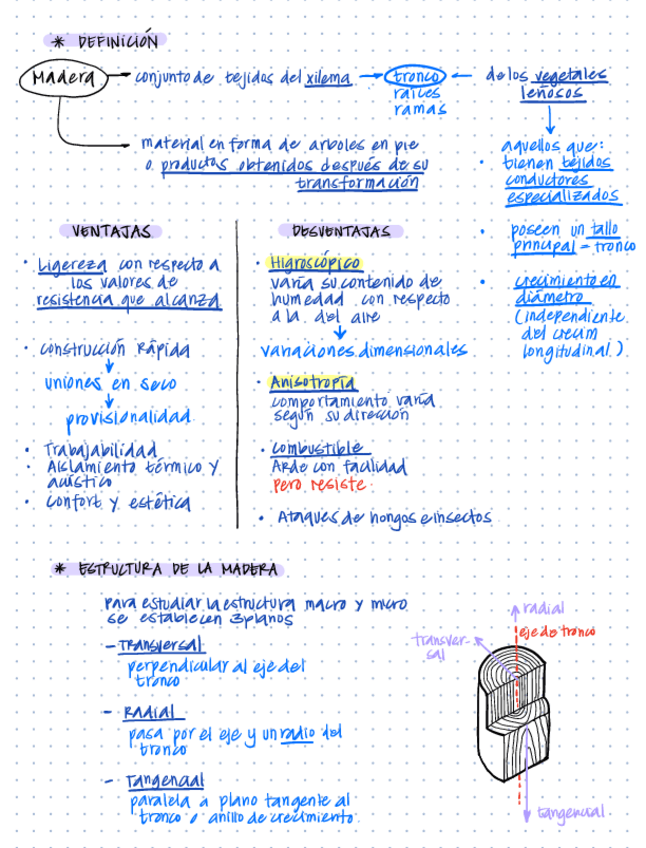 * DEFINICIÓN
Madera
conjunto de tejidos del xilema
tronco
raíces
ramas
de los vegetales
leñosos
material en forma de arboles en pie
o productos obtenidos después de su
transformación
aquellos que:
• tienen tejidos
conductores
especializados
• poseen un tallo
principal = tronco
• crecimiento en
diámetro
(independiente
del crecim
longitudinal)
VENTAJAS
• Ligereza con respecto a
los valores de
resistencia que alcanza
• construcción Rápida
uniones en seco
provisionalidad
• Trabajabilidad
• Aislamiento térmico y
acústico
• Confort y estética
DESVENTAJAS
• Higroscópico
varía su contenido de
humedad con respecto
a la del aire
variaciones dimensionales
• Anisotropía
comportamiento varía
según su dirección
• Combustible
Arde con facilidad
pero resiste
• Ataques de hongos e insectos
* ESTRUCTURA DE LA MADERA
Para estudiar la estructura macro y micro
se establecen 3 planos
- Transversal
perpendicular al eje del
tronco
- Radial
pasa por el eje y un radio del
tronco
- Tangencial
paralela a plano tangente al
tronco o anillo de crecimiento
radial
eje de tronco
transver-
sal
tangencial